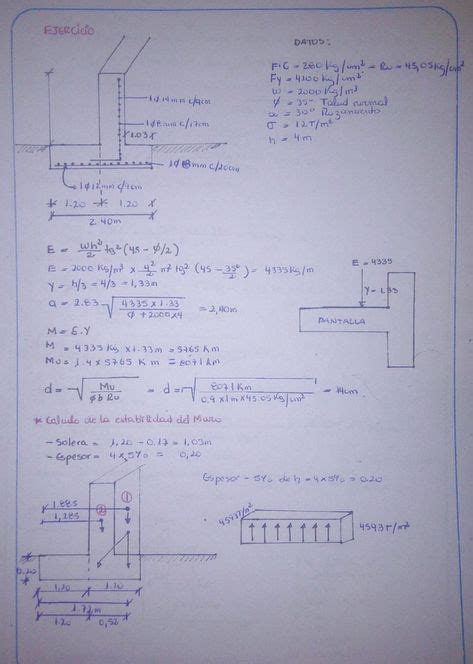 EJERCICIO
DATOS:
F'C = 280 Kg/cm² = Ru = 45,05 Kg/cm²
Fy = 4200 Kg/cm²
W = 2000 Kg/m³
φ = 35° Talud normal
α = 30° Rozamiento
σ = 12 T/m²
h = 4m
1φ14mm c/9cm
1φ8mm c/17cm
1.03
1φ8mm c/20cm
1φ12mm c/9cm
1.20 1.20
2.40m
E = Wh²/2 tg² (45 - φ/2)
E = 2000 Kg/m³ x 4²/2 m² tg² (45 - 35°/2) = 4335 Kg/m
Y = h/3 = 4/3 = 1,33m
a = 2.83 √(4335 x 1.33 / φ + 2000 x 4) = 2,40m
M = E.Y
M = 4335 Kg x 1.33m = 5765 Km
Mu = 1.4 x 5765 Km = 8071 Km
d = √(Mu / φ b Ru) = d = √(8071 Km / 0.9 x 1m x 45.05 Kg/cm²) = 14cm
E = 4335
Y = 1.33
PANTALLA
* Calculo de la estabilidad del Muro
- Solera = 1,20 - 0.17 = 1.03m
- Espesor = 4 x 5% = 0,20
Espesor - 5% de h = 4 x 5% = 0.20
1.885
1,285
②
①
0.20
1.20 1.20
1.72m
1.20 0,52
4593T/m²
4593T/m²